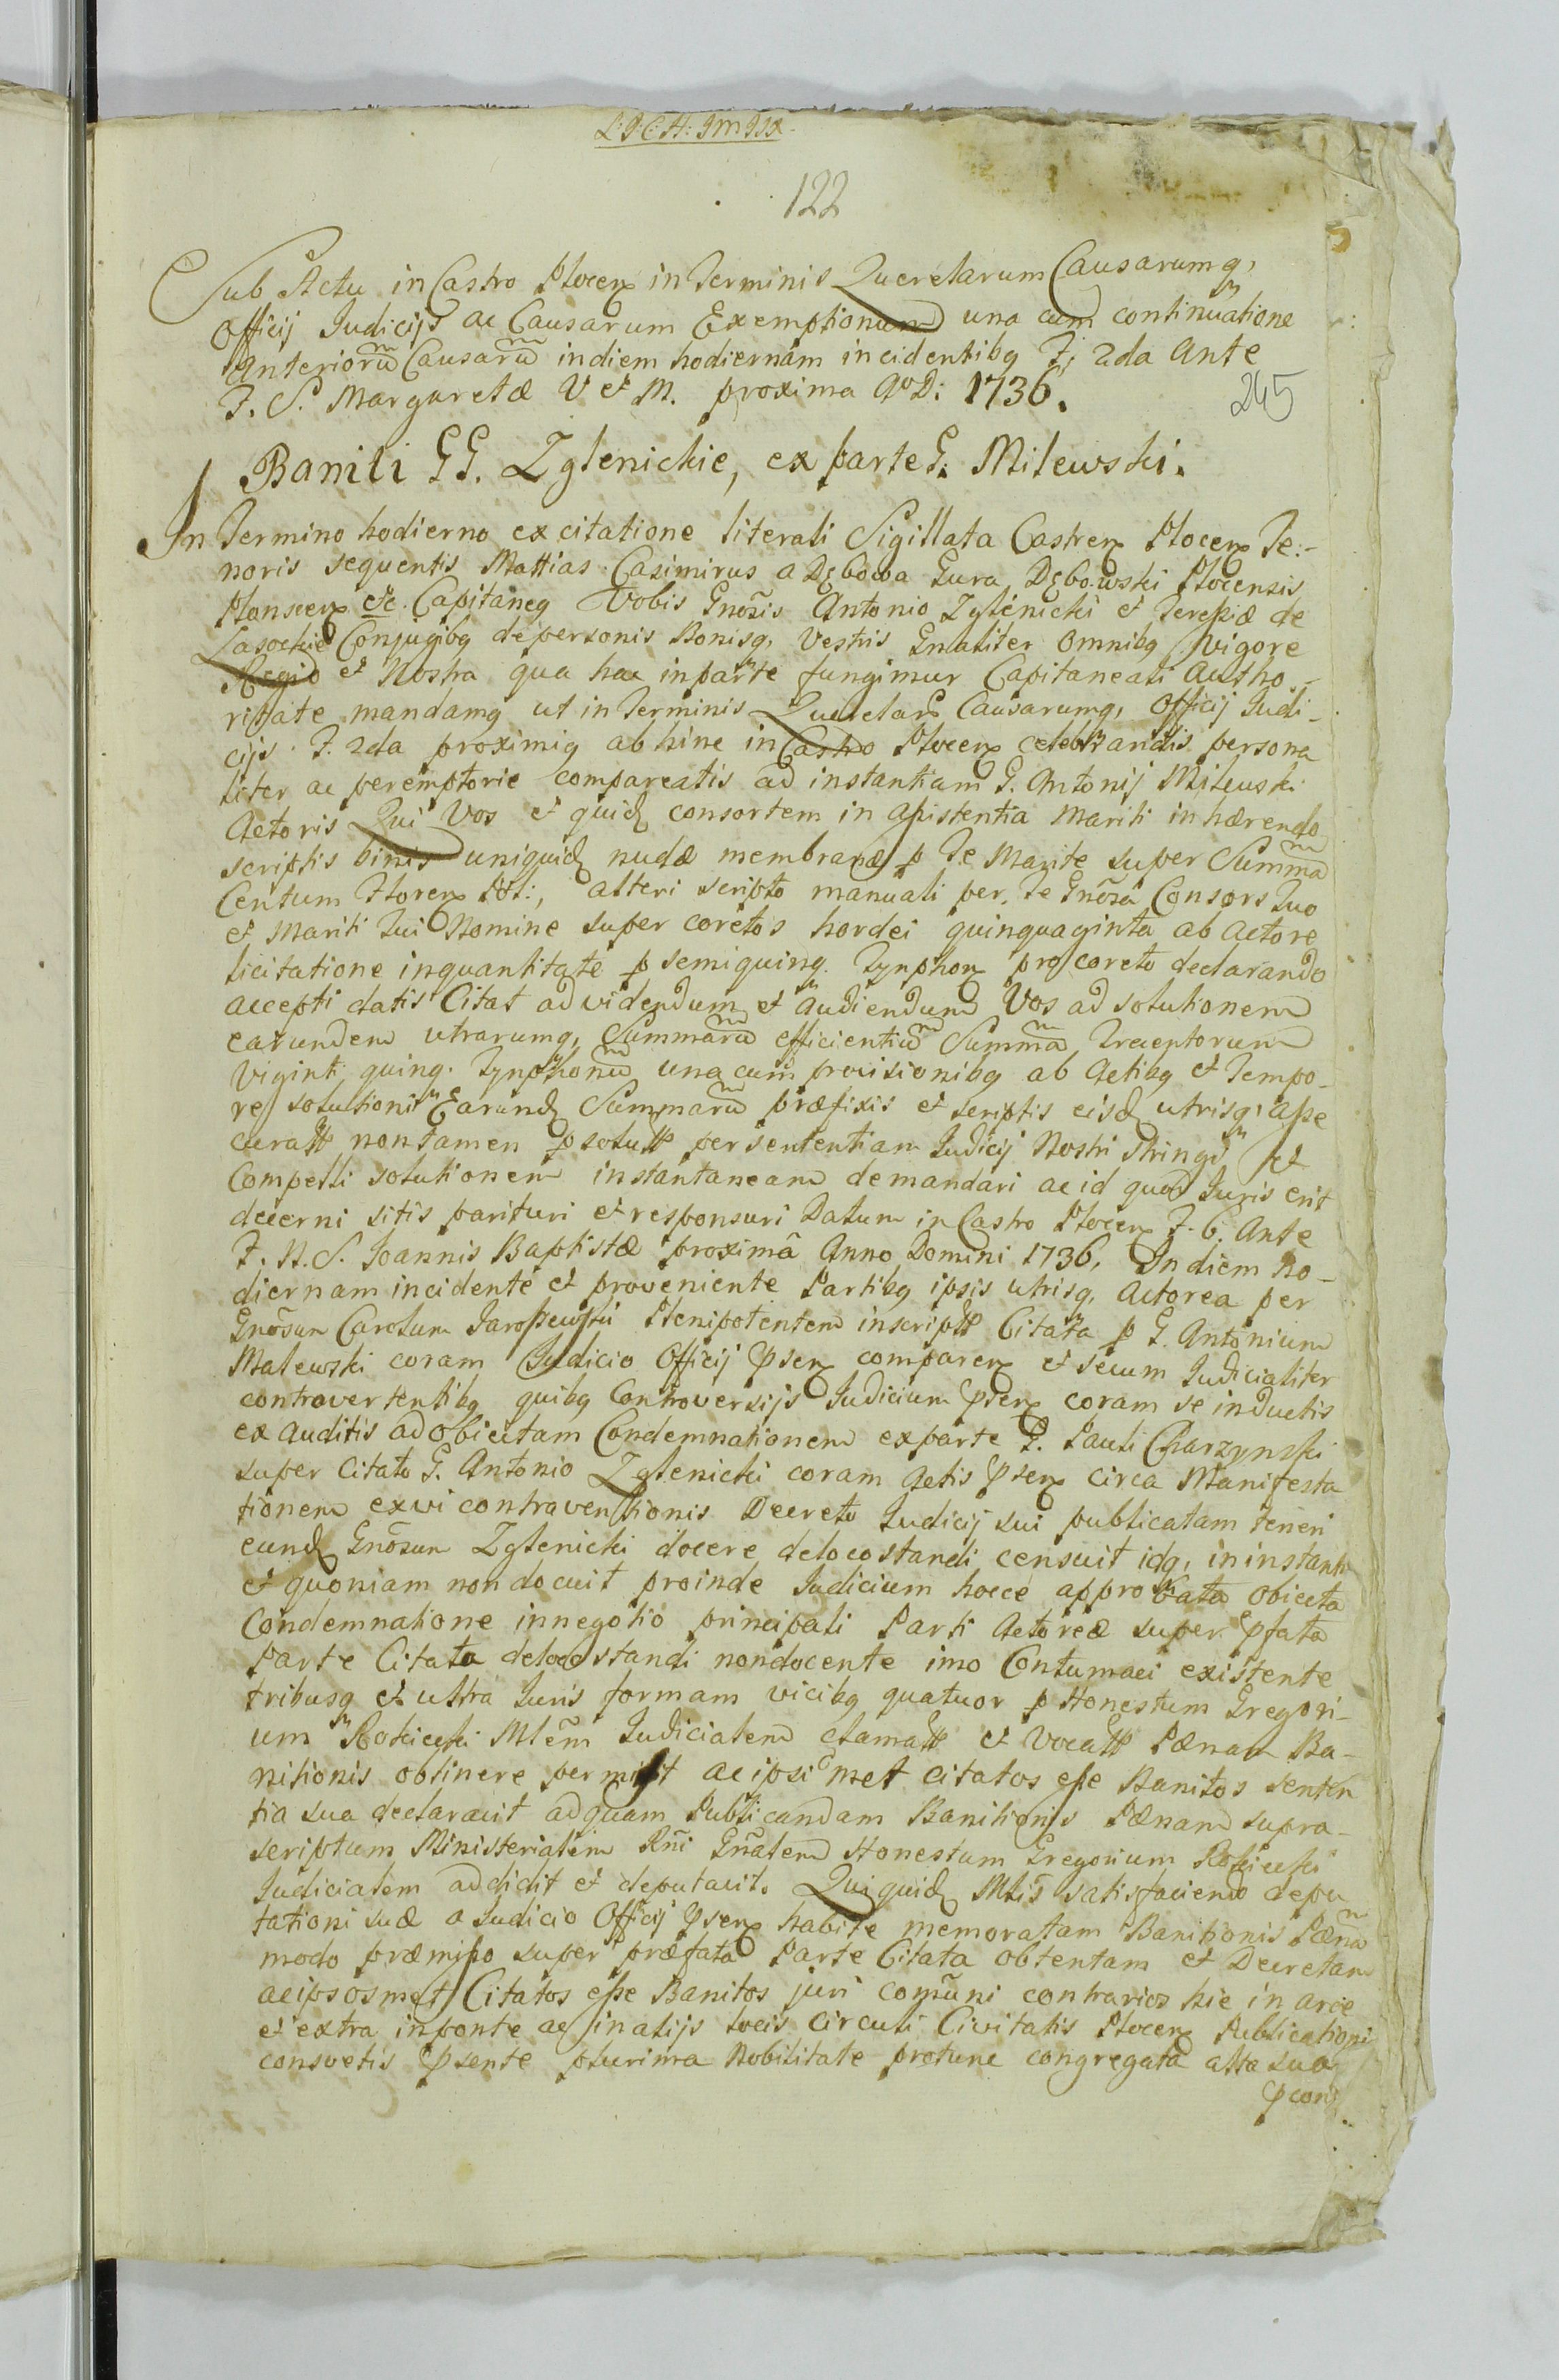 L: J: C: A: Jm Jsx.
122
Sub Actu in Castro Plocen in Terminis Querelarum Causarumq,
Officij Judicijs ac Causarum Exemptionum una cum continuatione
Anteriorũ Causarũ in diem hodiernam incidentibq F; 2da Ante
F. S. Margaretæ V et M. proxima AoD: 1736.
245
Baniti GG. Zglenickie, ex parte G. Milewski.
In Termino hodierno ex citatione literali Sigillata Castren Plocen Te:-
noris sequentis Mattias Casimirus a Dębowa Gura Dębowski Plocensis
Plonscen etc. Capitaneq Vobis Gnõsis Antonio Zglenicki et Teressiæ de
Lasockie Conjugibq de personis Bonisq, Vestris Gnaliter Omnibq vigore
Regio et Nostra qua hac in parte fungimur Capitaneali Autho-
ritate mandamq ut in Terminis Querelarũ Causarumq, Officij Judi-
cijs F. 2da proximiq ab hinc in Castro Plocen celebrandis persona
liter ac peremptorie compareatis ad instantiam G. Antonij Milewski
Actoris Qui Vos et quid consortem in assistentia Mariti inhærendo
scriptis binis uniquid nudæ membranæ p Te Marite super Summã
Centum Floren Pol:, alteri scripto manuali per Te Gnõsa Consors Tuo
et Mariti Tui Nomine super coretos hordei quinquaginta ab Actore
licitatione in quantitate p semiquinq. Tynphon pro coreto declarando
accepti datis Citat ad videndum et Audiendum Vos ad solutionem
earundem utrarumq, Summarũ efficientiũ Summã Trecentorum
Viginti quinq. Tynphonũ una cum provisionibq ab Actibq et Tempo-
re solutioni Earund Summarũ præfixis et scriptis eisd utrisq, asse
curatt non tamen p solutt per sententiam Judicij Nostri stringi et
Compelli solutionem instantaneam demandari ac id quod Juris erit
decerni sitis parituri et responsuri Datum in Castro Plocen F. 6. Ante
F. N. S. Joannis Baptistæ proximâ Anno Domini 1736, In diem ho-
diernam incidente et proveniente Partibq ipsis utrisq, Actorea per
Gnõsum Carolum Jaroszewski Plenipotentem inscriptt Citata p G. Antonium
Malewski coram Judicio Officij Psen comparen et secum Judicialiter
controvertentibq quibq Controversijs Judicium Psens coram se inductis
ex auditis ad obiectam Condemnationem ex parte G. Pauli Charzynski
super Citato G. Antonio Zglenicki coram Actis Psen circa Manifesta
tionem ex vi contraventionis Decreto Judicij sui publicatam teneri
eund Gnõsum Zglenicki docere de loco standi censuit idq, in instanti
et quoniam non docuit proinde Judicium hocce approbata obiecta
Condemnatione in negotio principali Parti Actoreæ super Pfata
Parte Citata de loco standi non docente imo Contumaci existente
tribusq et ultra Juris formam vicibq quatuor p Honestum Gregori-
um Rokicki Mlẽm Judicialem clamatt et Vocatt Pænam Ba-
nitionis obtinere permisit ac ipsosmet citatos esse Banitos senten
tia sua declaravit ad quam Publicandam Banitionis Pænam supra-
scriptum Ministerialem Rñi Gñalem Honestum Gregorium Rokicki
Judicialem addidit et deputavit. Qui quid Mlis satisfaciendo depu
tationi suæ a Judicio Officij Psen habitæ memoratam Banitionis Pænã
modo præmisso super præfata Parte Citata obtentam et Decretam
ac ipsosmet Citatos esse Banitos juri comũni contrarios hic in arce
et extra in ponte ac in alijs locis Circuli Civitatis Plocen Publicationi
consvetis Psente plurima Nobilitate protunc congregata alta sua
Pcon